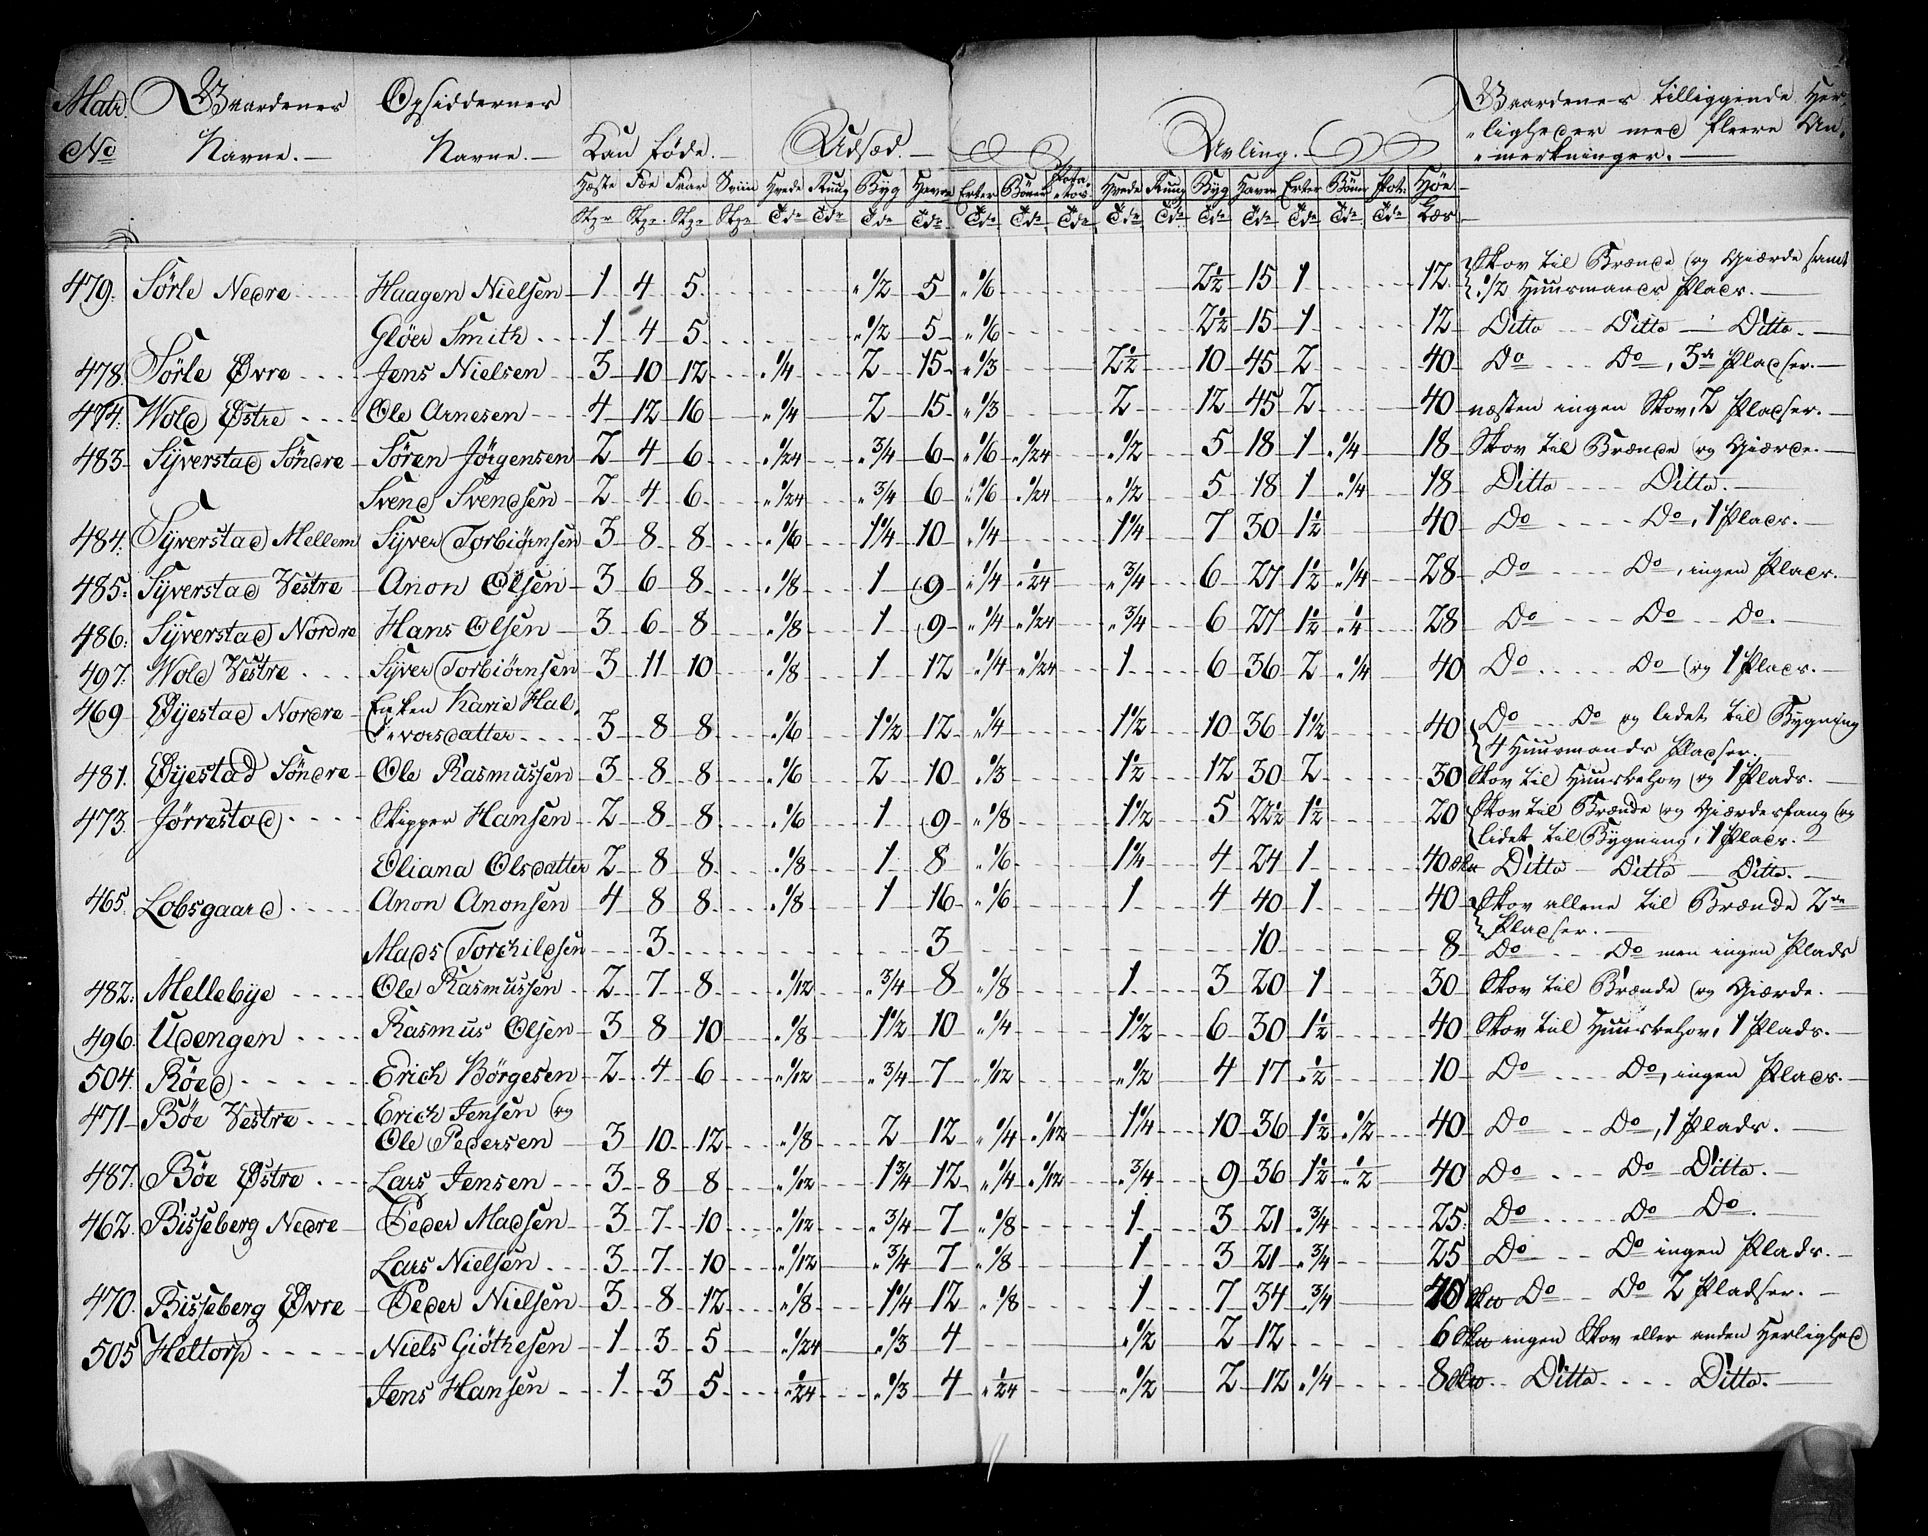 Matr. Gaardenes Opsiddernes Kan føde. Udsæd. Avling. Gaardenes tilliggende Her-
No Navne. Navne. ligheder med fleere An-
mærkninger.
Heste Fæe Faar Sviin Hvede Rug Byg Havre Erter Bönner Potatos Hvede Rug Byg Havre Erter Bönner Pot: Höe
Stkr Stkr Stkr Stkr Tdr Tdr Tdr Tdr Tdr Tdr Tdr Tdr Tdr Tdr Tdr Tdr Tdr Tdr Læs
479. Sørle Nedre Haagen Nielsen 1 4 5 1/2 5 1/6 2 1/2 15 1 12 Skov til Brænde og Giærde samt
1/2 Huusmands Plads.
Glöer Smith 1 4 5 1/2 5 1/6 2 1/2 15 1 12 Ditto Ditto Ditto.
478. Sørle Øvre Jens Nielsen 3 10 12 1/4 2 15 1/3 2 1/2 10 45 2 40 Do Do, 3de Pladser.
474. Wold Østre Ole Arnesen 4 12 16 1/4 2 15 1/3 2 12 45 2 40 næsten ingen Skov, 2 Pladser.
483 Syverstad Søndre Sören Jörgensen 2 4 6 1/24 3/4 6 1/6 1/24 1/2 5 18 1 1/4 18 Skov til Brænde og Giærde.
Svend Svendsen 2 4 6 1/24 3/4 6 1/6 1/24 1/2 5 18 1 1/4 18 Ditto Ditto.
484. Syverstad Mellem Syver Torbiörnsen 3 8 8 1/6 1 1/4 10 1/4 1 1/4 7 30 1 1/2 40 Do Do, 1 Plads.
485. Syverstad Vestre Anon Olsen 3 6 8 1/8 1 9 1/4 1/24 3/4 6 27 1 1/2 1/4 28 Do Do, ingen Plads.
486. Syverstad Nordre Hans Olsen 3 6 8 1/8 1 9 1/4 1/24 3/4 6 27 1 1/2 1/4 28 Do Do Do.
497. Wold Vestre Syver Torbiörnsen 3 11 10 1/8 1 12 1/4 1/24 1 6 36 2 1/4 40 Do Do og 1 Plads.
469 Øyestad Nordre Enken Karie Hal-
vorsdatter 3 8 8 1/6 1 1/2 12 1/4 1 1/2 10 36 1 1/2 40 Do Do og lidet til Bygning
4 Huusmands Pladser.
481. Øyestad Søndre Ole Rasmussen 3 8 8 1/6 2 10 1/3 1 1/2 12 30 2 30 Skov til Huusbehov og 1 Plads.
473. Jørrestad Skipper Hansen 2 8 8 1/6 1 9 1/8 1 1/2 5 22 1/2 1 1/2 20 Skov til Brænde og Giærdesfang og
lidet til Bygning, 1 Plads.
Eliana Olsdatter 2 8 8 1/8 1 8 1/6 1 1/4 4 24 1 40 Ditto Ditto Ditto.
465. Lobsgaard Anon Anonsen 4 8 8 1/8 1 16 1/6 1 4 40 1 40 Skov allene til Brænde 2de
Pladser.
Mads Torchildsen 3 3 10 8 Do Do men ingen Plads
482. Mellebye Ole Rasmussen 2 7 8 1/12 3/4 8 1/8 1 3 20 1 30 Skov til Brænde og Giærde.
496. Udengen Rasmus Olsen 3 8 10 1/8 1 1/2 10 1/4 1 1/2 6 30 1 1/2 40 Skov til Huusbehov, 1 Plads.
504. Röed Erich Börgesen 2 4 6 1/12 3/4 7 1/12 1/2 4 17 1/2 10 Do Do, ingen Plads.
471 Böe Vestre Erich Jensen og
Ole Pedersen 3 10 12 1/8 2 12 1/4 1/12 1 1/4 10 36 1 1/2 1/2 40 Do Do, 1 Plads.
487. Böe Østre Lars Jensen 3 8 8 1/12 1 3/4 12 1/4 1/12 3/4 9 36 1 1/2 1/2 40 Do Do Ditto.
462. Bisseberg Nedre Peder Madsen 3 7 10 1/12 3/4 7 1/8 1 3 21 3/4 25. Do Do Do.
Lars Nielsen 3 7 10 1/12 3/4 7 1/8 1 3 21 3/4 25 Do Do ingen Plads.
470. Bisseberg Øvre Peder Nielsen 3 8 12 1/8 1 1/4 12 1/8 1 7 34 3/4 Do Do 2 Pladser.
505 Hettorp Niels Giöthesen 1 3 5 1/24 1/3 4 1/2 2 12 6 ingen Skov eller anden Herlighed
Jens Hansen 1 3 5 1/24 1/3 4 1/24 1/2 2 12 1/4 8 Ditto Ditto.